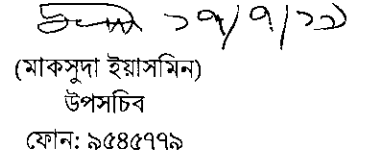 ১৭/৭/১১
(মাকসুদা ইয়াসমিন)
উপসচিব
ফোন: ৯৫৪৫৭৭৯